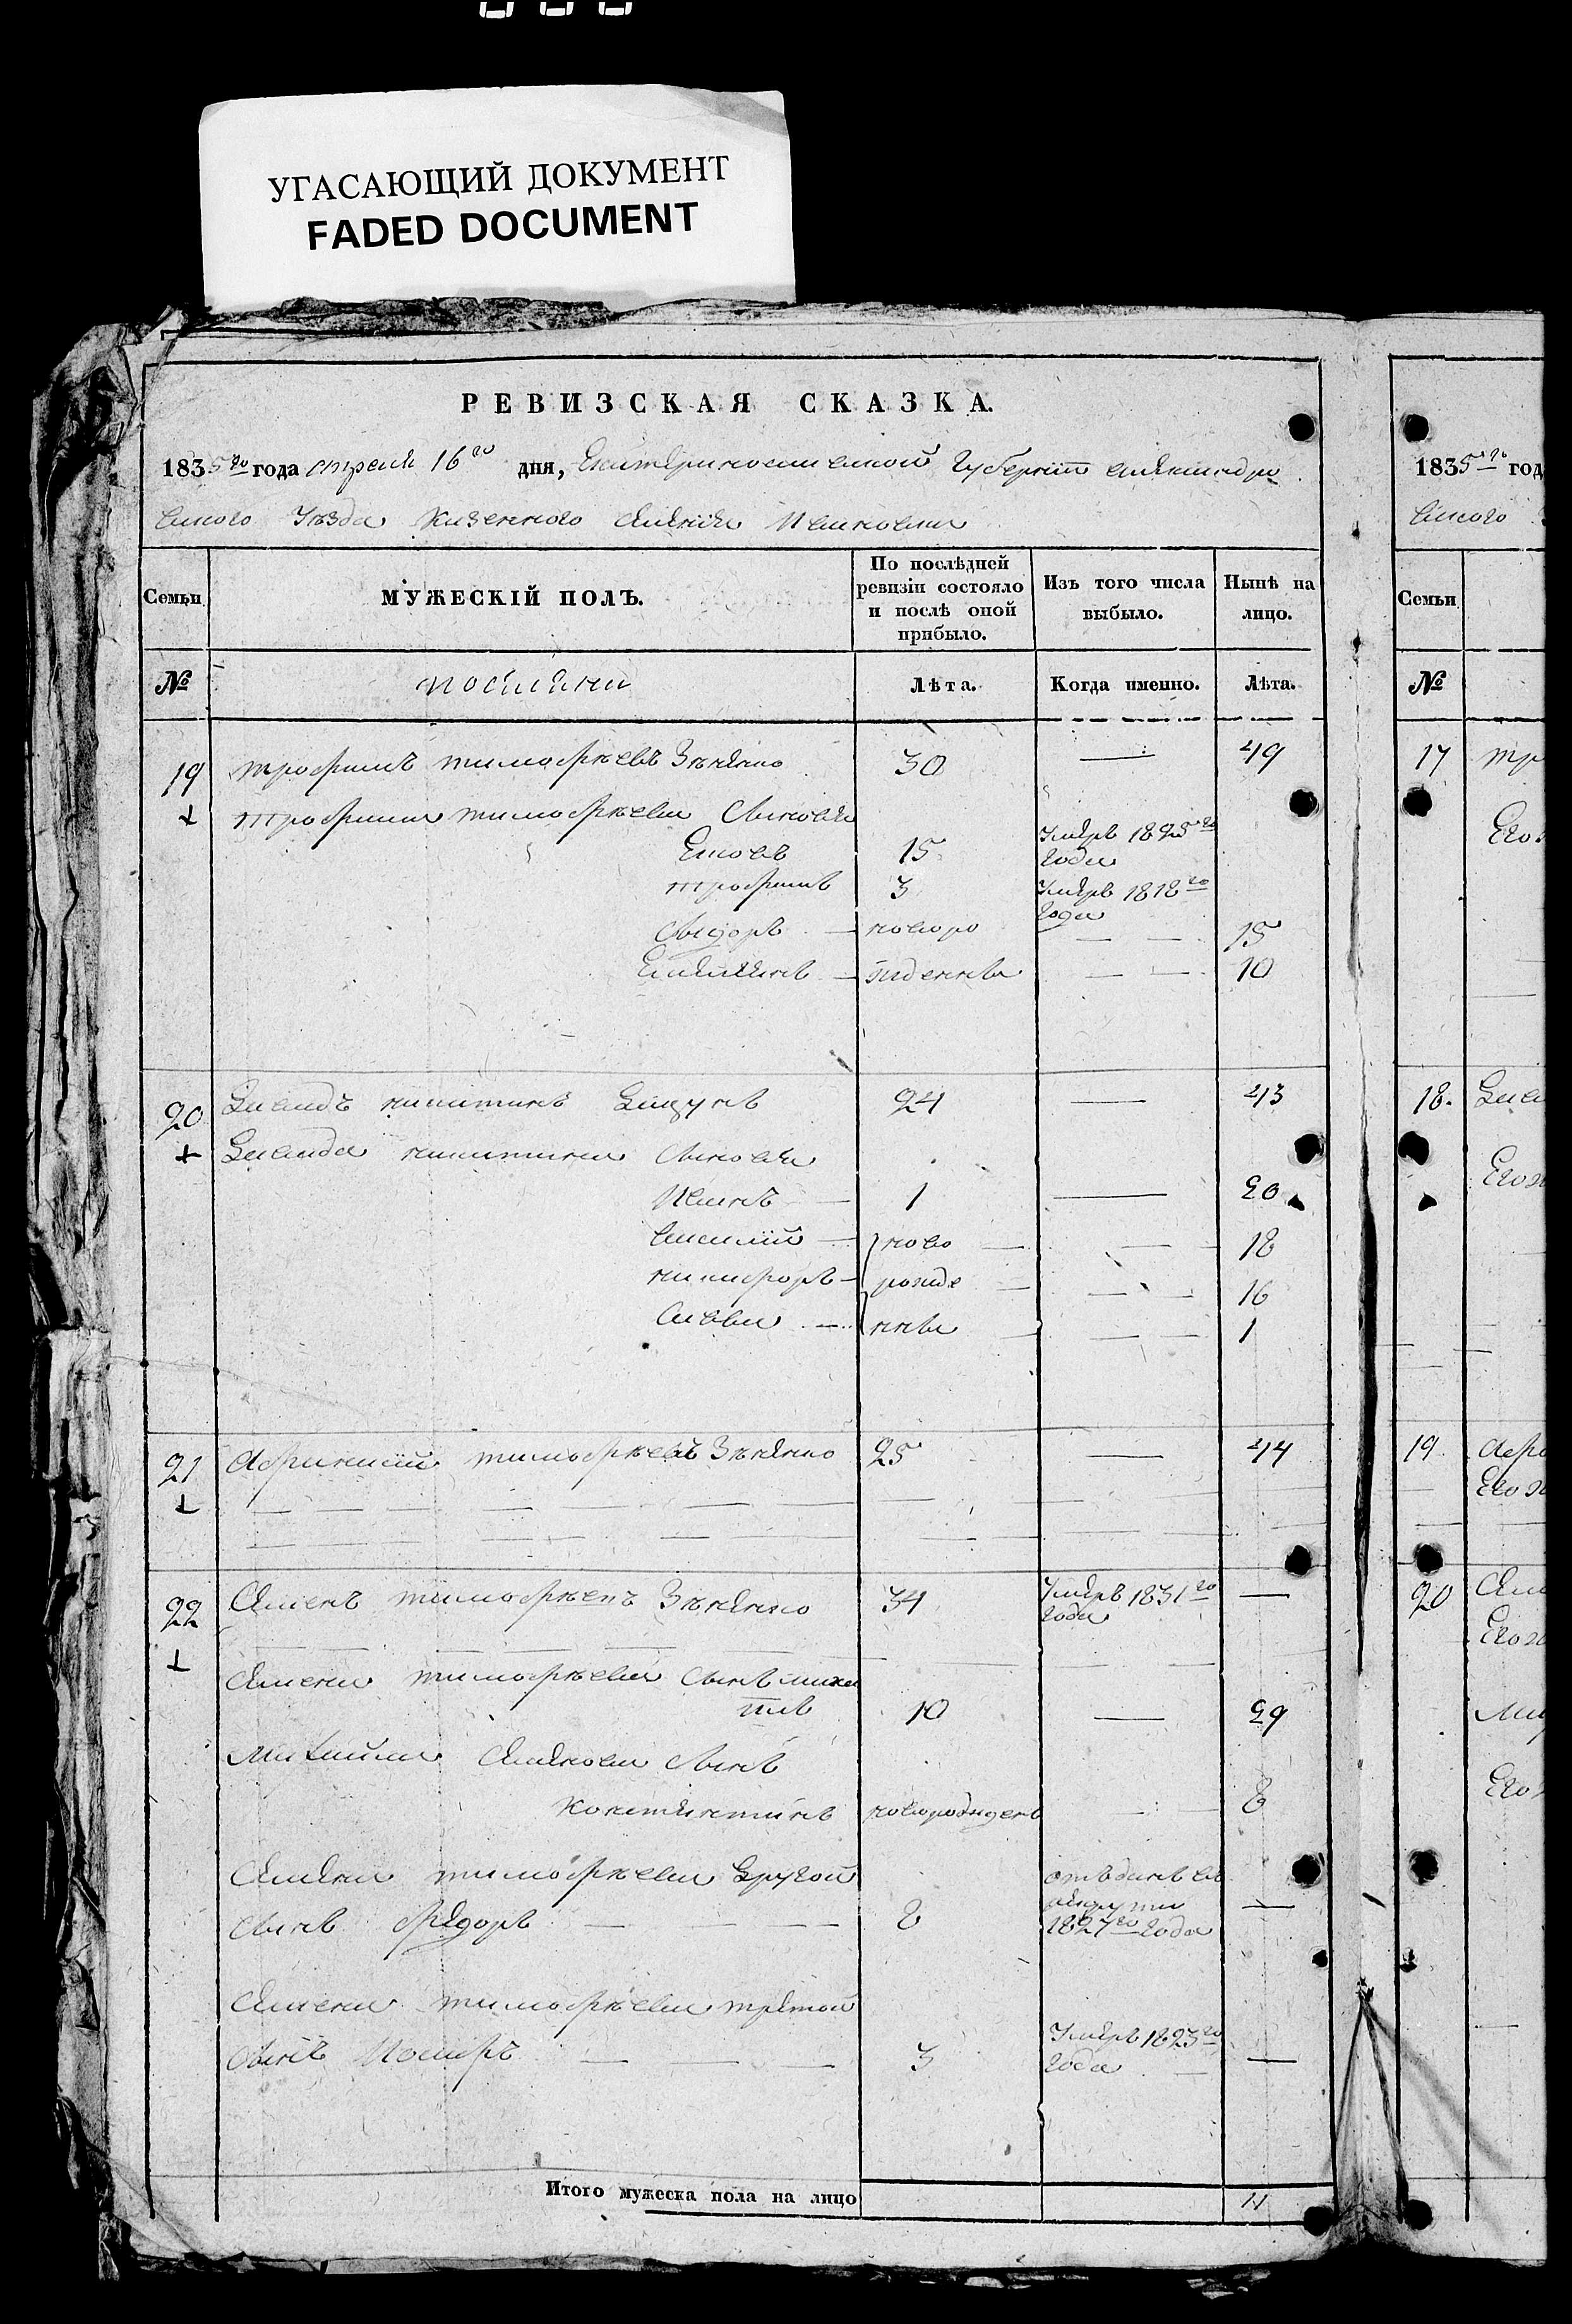 УГАСАЮЩИЙ ДОКУМЕНТ
FADED DOCUMENT
РЕВИЗСКАЯ СКАЗКА.
1835го года апреля 16го дня, Екатеринославской Губернии александро
вского Уѣзда Казенного селения
Семьи
МУЖЕСКІЙ ПОЛЪ.
По послѣдней ревизіи состояло и послѣ оной прибыло.
Изъ того числа выбыло.
Нынѣ на лицо.
№
Лѣта.
Когда именно.
Лѣта.
19 трофимъ тимофѣевъ Зѣненко 30 — 49
трофима тимофѣева сыновя
15 Умеръ 1825го года
трофимъ 3 Умеръ 1818го года
сидоръ — новоро — — 15
Емелянъ — жденны — — 10
20 никитинъ 24 — 43
никитина сыновя
Иванъ — 1 — 20
василий — ново — 18
никифоръ — рожде — — 16
савва — нны — — 1
21 Афанасий тимофѣевъ Зѣненко 25 — 44
22 Семенъ тимофѣевъ Зѣненко 34 Умеръ 1831го года —
Семена тимофѣева сынъ миха
илъ 10 — 29
Михайла Семенова сынъ
константинъ новорожденъ — 8
Семена тимофѣева Другой
сынъ фѣдоръ — — — 8 отъданъ въ рекруты 1827го года —
Семена тимофѣева третой
сынъ Иосифъ — — — 3 Умеръ 1823го года —
Итого мужеска пола на лицо 11
1835го год
вского
Семьи
№
17 тр
Его
18.
Его
19 Афа
Его
20 Сем
Его
Мих
Его